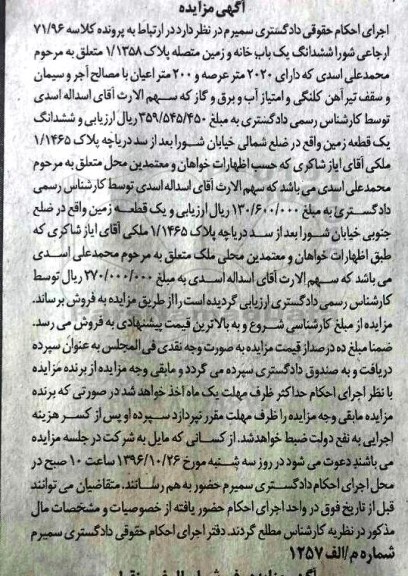 آگهی مزایده
اجرای احکام حقوقی دادگستری سمیرم در نظر دارد در ارتباط به پرونده کلاسه ۷۱/۹۶
ارجاعی شورا ششدانگ یک باب خانه و زمین متصله پلاک ۱/۱۳۵۸ متعلق به مرحوم
محمدعلی اسدی که دارای ۲۰۲۰ متر عرصه و ۲۰۰ متر اعیان با مصالح آجر و سیمان
و سقف تیر آهن کلنگی و امتیاز آب و برق و گاز که سهم الارث آقای اسداله اسدی
توسط کارشناس رسمی دادگستری به مبلغ ۳۵۹/۵۴۵/۴۵۰ ریال ارزیابی و ششدانگ
یک قطعه زمین واقع در ضلع شمالی خیابان شورا بعد از سد دریاچه پلاک ۱/۱۴۶۵
ملکی آقای ایاز شاکری که حسب اظهارات خواهان و معتمدین محل متعلق به مرحوم
محمدعلی اسدی می باشد که سهم الارث آقای اسداله اسدی توسط کارشناس رسمی
دادگستری به مبلغ ۱۳۰/۶۰۰/۰۰۰ ریال ارزیابی و یک قطعه زمین واقع در ضلع
جنوبی خیابان شورا بعد از سد دریاچه پلاک ۱/۱۴۶۵ ملکی آقای ایاز شاکری که
طبق اظهارات خواهان و معتمدین محلی ملک متعلق به مرحوم محمدعلی اسدی
می باشد که سهم الارث آقای اسداله اسدی به مبلغ ۲۷۰/۰۰۰/۰۰۰ ریال توسط
کارشناس رسمی دادگستری ارزیابی گردیده است را از طریق مزایده به فروش برساند.
مزایده از مبلغ کارشناسی شروع و به بالاترین قیمت پیشنهادی به فروش می رسد.
ضمنا مبلغ ده درصد از قیمت مزایده به صورت وجه نقدی فی المجلس به عنوان سپرده
دریافت و به صندوق دادگستری سپرده می گردد و مابقی وجه مزایده از برنده مزایده
با نظر اجرای احکام حداکثر ظرف مهلت یک ماه اخذ خواهد شد در صورتی که برنده
مزایده مابقی وجه مزایده را ظرف مهلت مقرر نپردازد سپرده او پس از کسر هزینه
اجرایی به نفع دولت ضبط خواهدشد. از کسانی که مایل به شرکت در جلسه مزایده
می باشند دعوت می شود در روز سه شنبه مورخ ۱۳۹۶/۱۰/۲۶ ساعت ۱۰ صبح در
محل اجرای احکام دادگستری سمیرم حضور به هم رسانند. متقاضیان می توانند
قبل از تاریخ فوق در واحد اجرای احکام حضور یافته از خصوصیات و مشخصات مال
مذکور در نظریه کارشناس مطلع گردند. دفتر اجرای احکام حقوقی دادگستری سمیرم
شماره م/الف ۱۲۵۷